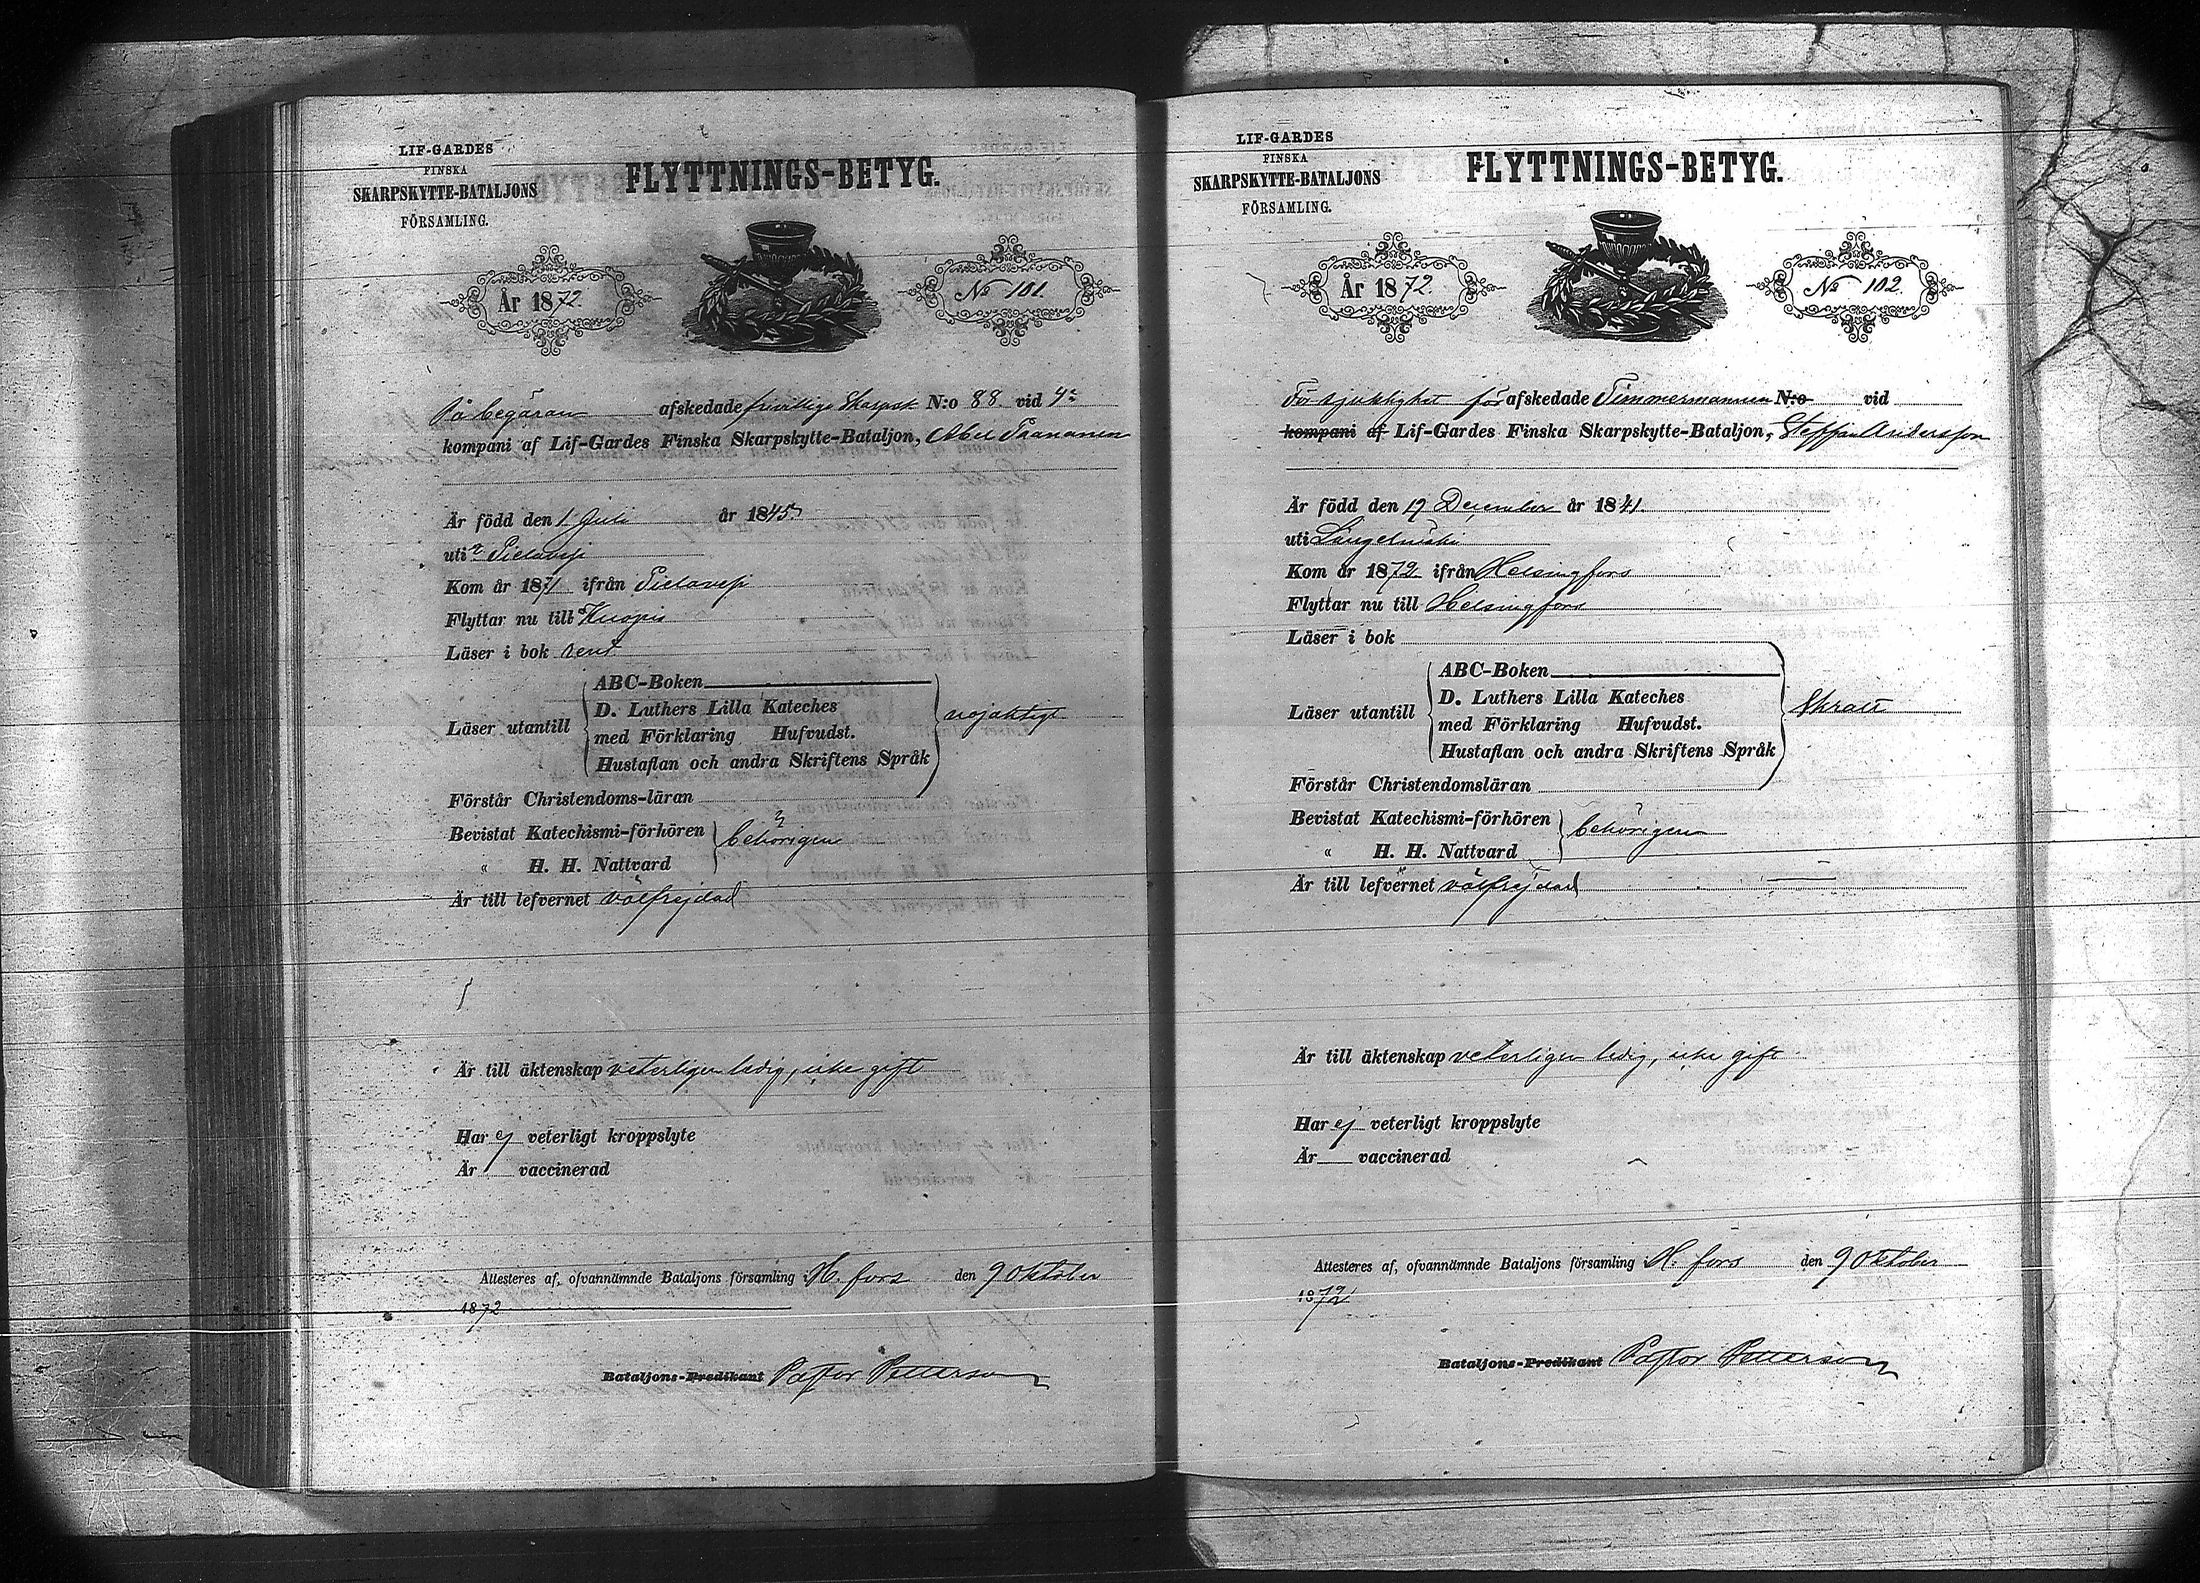 LIF-GARDES
FINSKA
SKARPSKYTTE-BATALJONS
FÖRSAMLING.
FLYTTNINGS-BETYG.
År 1872.
No 101.
På begäran afskedade frivillige Skarpsk N:o 88 vid 4e
kompani af Lif-Gardes Finska Skarpskytte-Bataljon, Abel Paananen
Är född den 1 Juli år 1845
uti Pielavesi
Kom år 1871 ifrån Pielavesi
Flyttar nu till Kuopio
Läser i bok rent
ABC-Boken
Läser utantill D. Luthers Lilla Kateches
med Förklaring Hufvudst. nöjaktigt
Hustaflan och andra Skriftens Språk
Förstår Christendoms-läran
Bevistat Katechismi-förhören behörigen
" H. H. Nattvard
Är till lefvernet välfrejdad
Är till äktenskap veterligen ledig, icke gift
Har ej veterligt kroppslyte
Är vaccinerad
Attesteres af, ofvannämnde Bataljons församling i H. fors den 9 Oktober
1872
Bataljons-Predikant Pastor Petterson
LIF-GARDES
FINSKA
SKARPSKYTTE-BATALJONS
FÖRSAMLING.
FLYTTNINGS-BETYG.
År 1872
No 102.
För sjuklighet för afskedade Timmermannen N:o vid
kompani af Lif-Gardes Finska Skarpskytte-Bataljon, Steffan Andersson
Är född den 19 December år 1841.
uti Längelmäki
Kom år 1872 ifrån Helsingfors
Flyttar nu till Helsingfors
Läser i bok
ABC-Boken
Läser utantill D. Luthers Lilla Kateches
med Förklaring Hufvudst.
Hustaflan och andra Skriftens Språk
Förstår Christendomsläran
Bevistat Katechismi-förhören behörigen
" H. H. Nattvard
Är till lefvernet välfrejdad
Är till äktenskap veterligen ledig, icke gift
Har ej veterligt kroppslyte
Är vaccinerad
Attesteres af, ofvannämnde Bataljons församling i H. fors den 9 Oktober
1872
Bataljons-Predikant Pastor Petterson